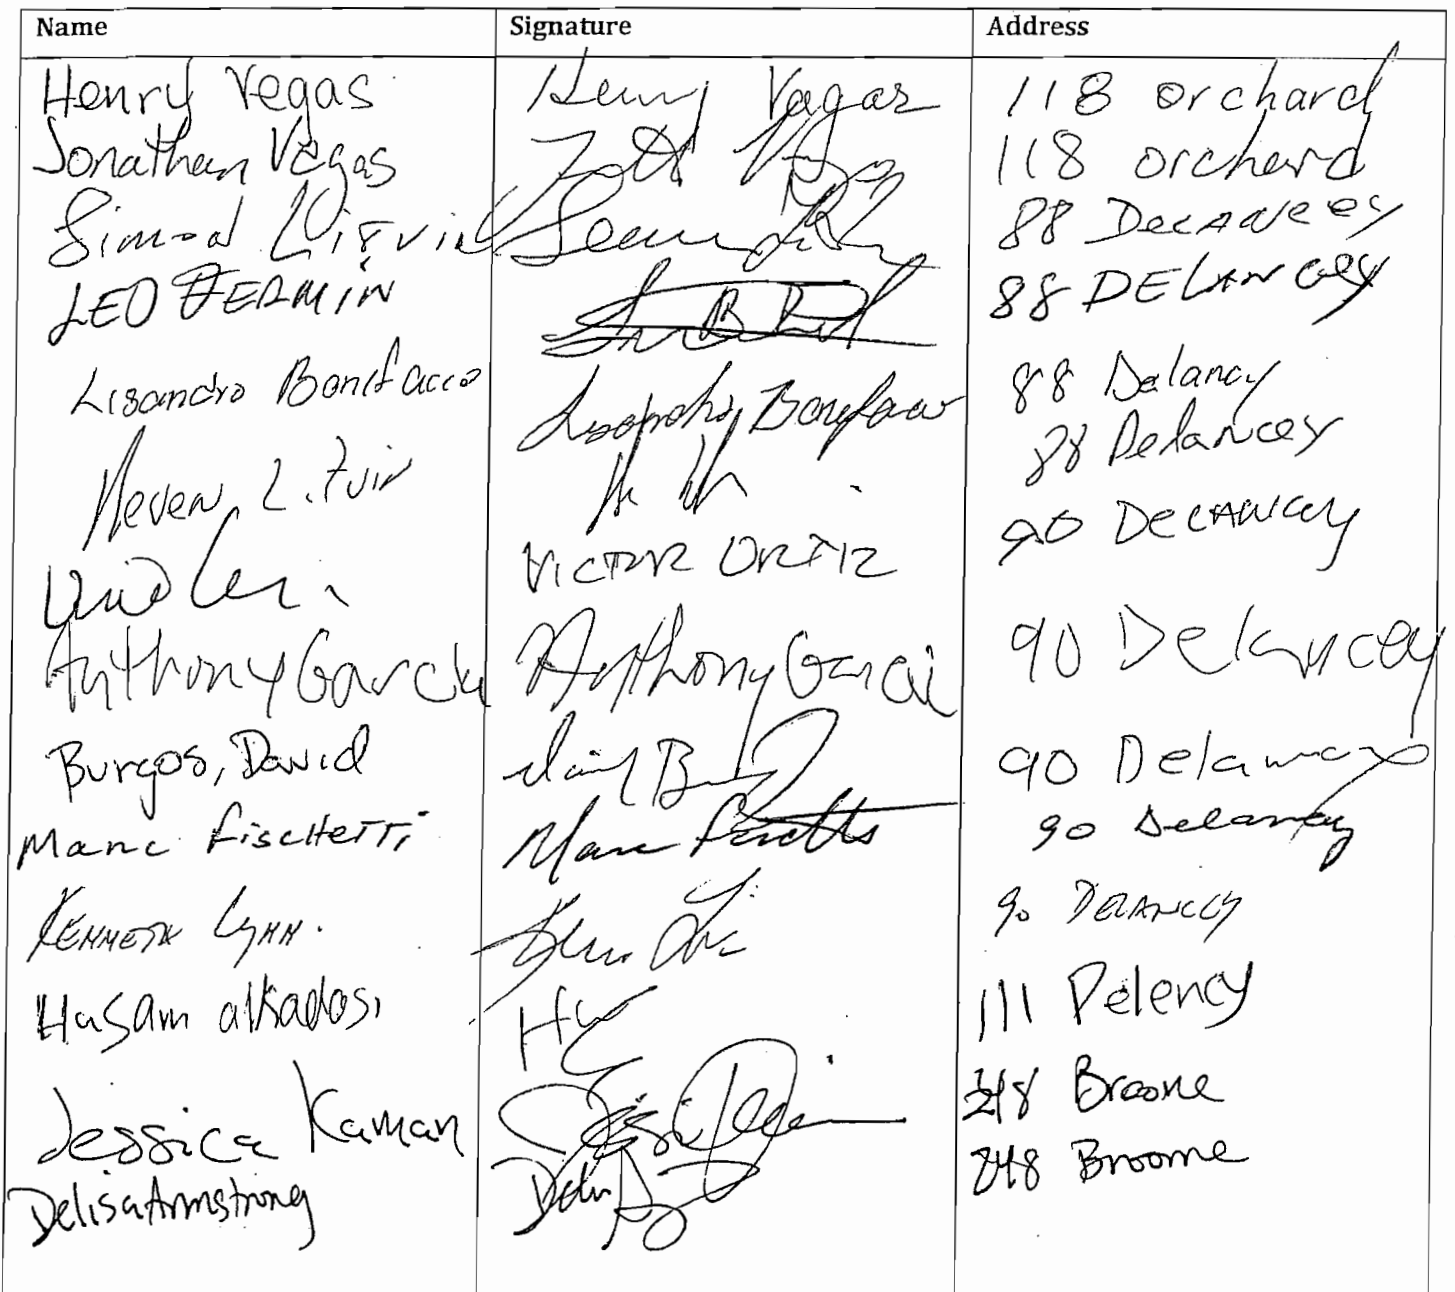 Name Signature Address
Henry Vegas Henry Vagas 118 orchard
Jonathan Vegas 118 orchard
Simon Litvin 88 Delancey
LEO FERMIN 88 DELANCEY
Lisandro Bonifacio Bonifacio 88 Delancy
Neven Litvin 88 Delancey
VICTOR ORTIZ 90 Delancey
Anthony Garcia Anthony Garcia 90 Delancey
Burgos, David 90 Delancey
Marc Fischetti Marc 90 Delancey
KENNETH LYNN. 90 DELANCEY
Hasam alkadosi 111 Delency
Jessica Kaman 248 Broome
Delisa Armstrong 248 Broome